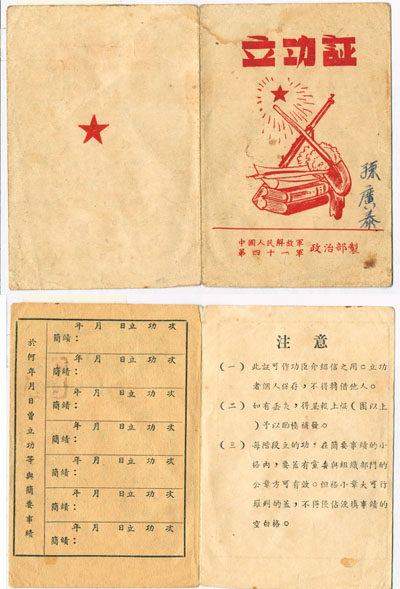 立功証
孫廣泰
中國人民解放軍
第四十一軍 政治部製
於何年月日曾立功等與簡要事績
年 月 日立 功 次
簡績：
年 月 日立 功 次
簡績：
年 月 日立 功 次
簡績：
年 月 日立 功 次
簡績：
年 月 日立 功 次
簡績：
年 月 日立 功 次
簡績：
年 月 日立 功 次
簡績：
注意
(一) 此証可作功臣介紹信之用。立功
者個人保存，不得轉借他人。
(二) 如有丟失，得呈報上級(團以上
)予以酌情補發。
(三) 每階段立的功，在簡要事績的小
格內，要蓋有黨委與組織部門的
公章方可有效。但格小章大可行
羅列的蓋，不得侵佔沒填事績的
空白格。